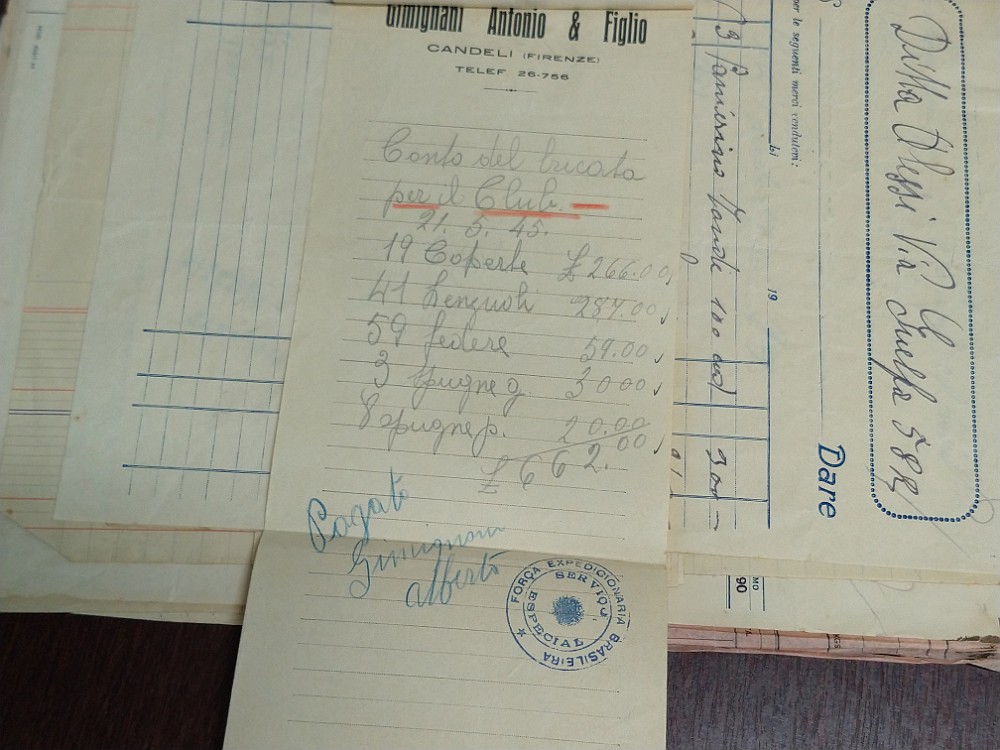 Gimignani Antonio & Figlio
CANDELI (FIRENZE)
TELEF 26-756
Conto del bucato
per il Club.
21. 5. 45.
19 Coperte £ 266.00
41 Lenzuoli 287.00
59 federe 59.00
3 spugne g. 30 00
8 spugne p. 20.00
£ 662.00
Pagato
Gimignani
alberto
FORÇA EXPEDICIONARIA BRASILEIRA
SERVIÇO ESPECIAL
Ditta Alessi Via Guelfa 58R
Dare
per le seguenti merci vendutevi:
19
100
300
Mo
90
KGS